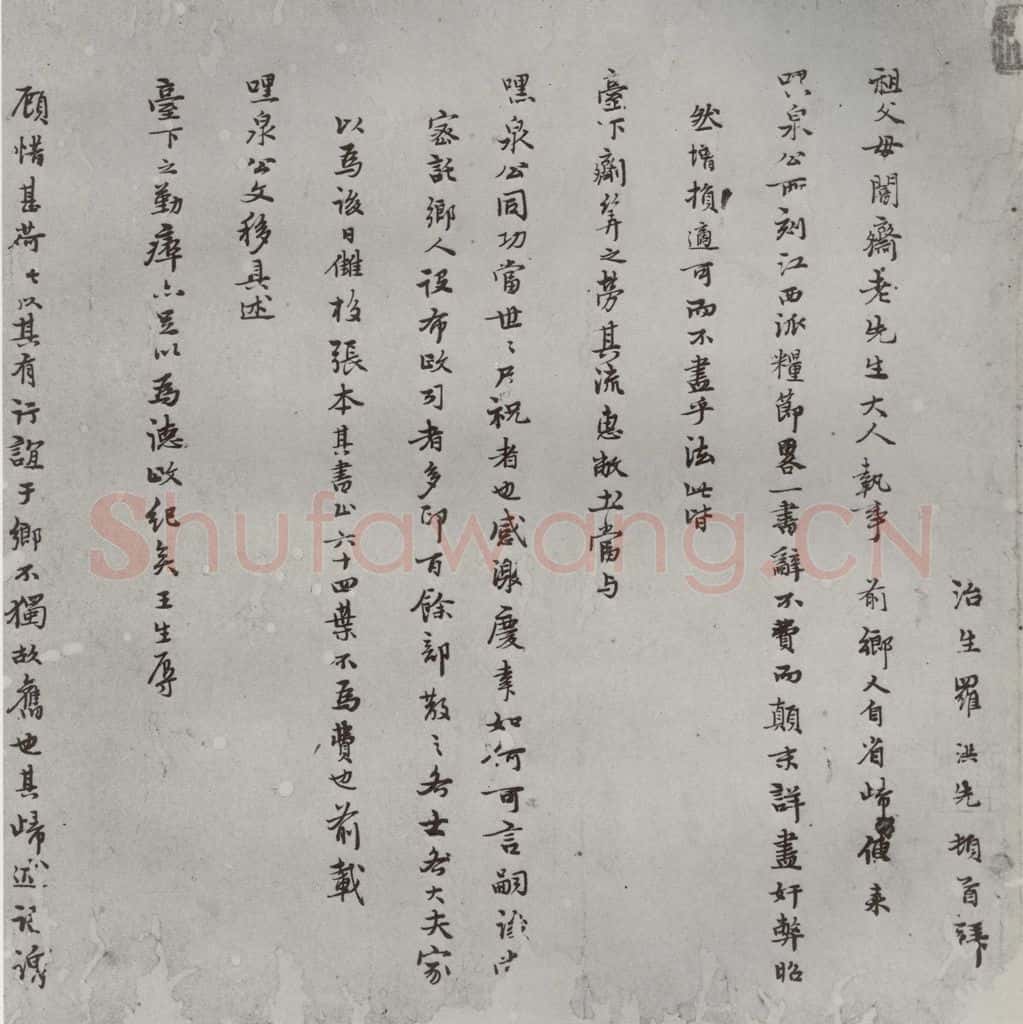 治生羅洪先頓首拜
祖父母闇齋老先生大人執事 前鄉人自省歸傳來
泉公所刻江西派糧節畧一書辭不費而顛末詳盡奸弊昭
然增損適可而不盡乎法此皆
臺下劑筭之勞其流惠敝土當与
嘿泉公同功當世〻尸祝者也感激慶幸如何可言嗣
密託鄉人設布政司者多印百餘部散之各士各大夫家
以為後日讎校張本其書止六十四葉不為費也前載
嘿泉公文移具述
臺下之勤瘁亦足以為德政紀矣王生辱
顧惜甚荷〻以其有行誼于鄉不獨故舊也其歸
Shufawang.CN